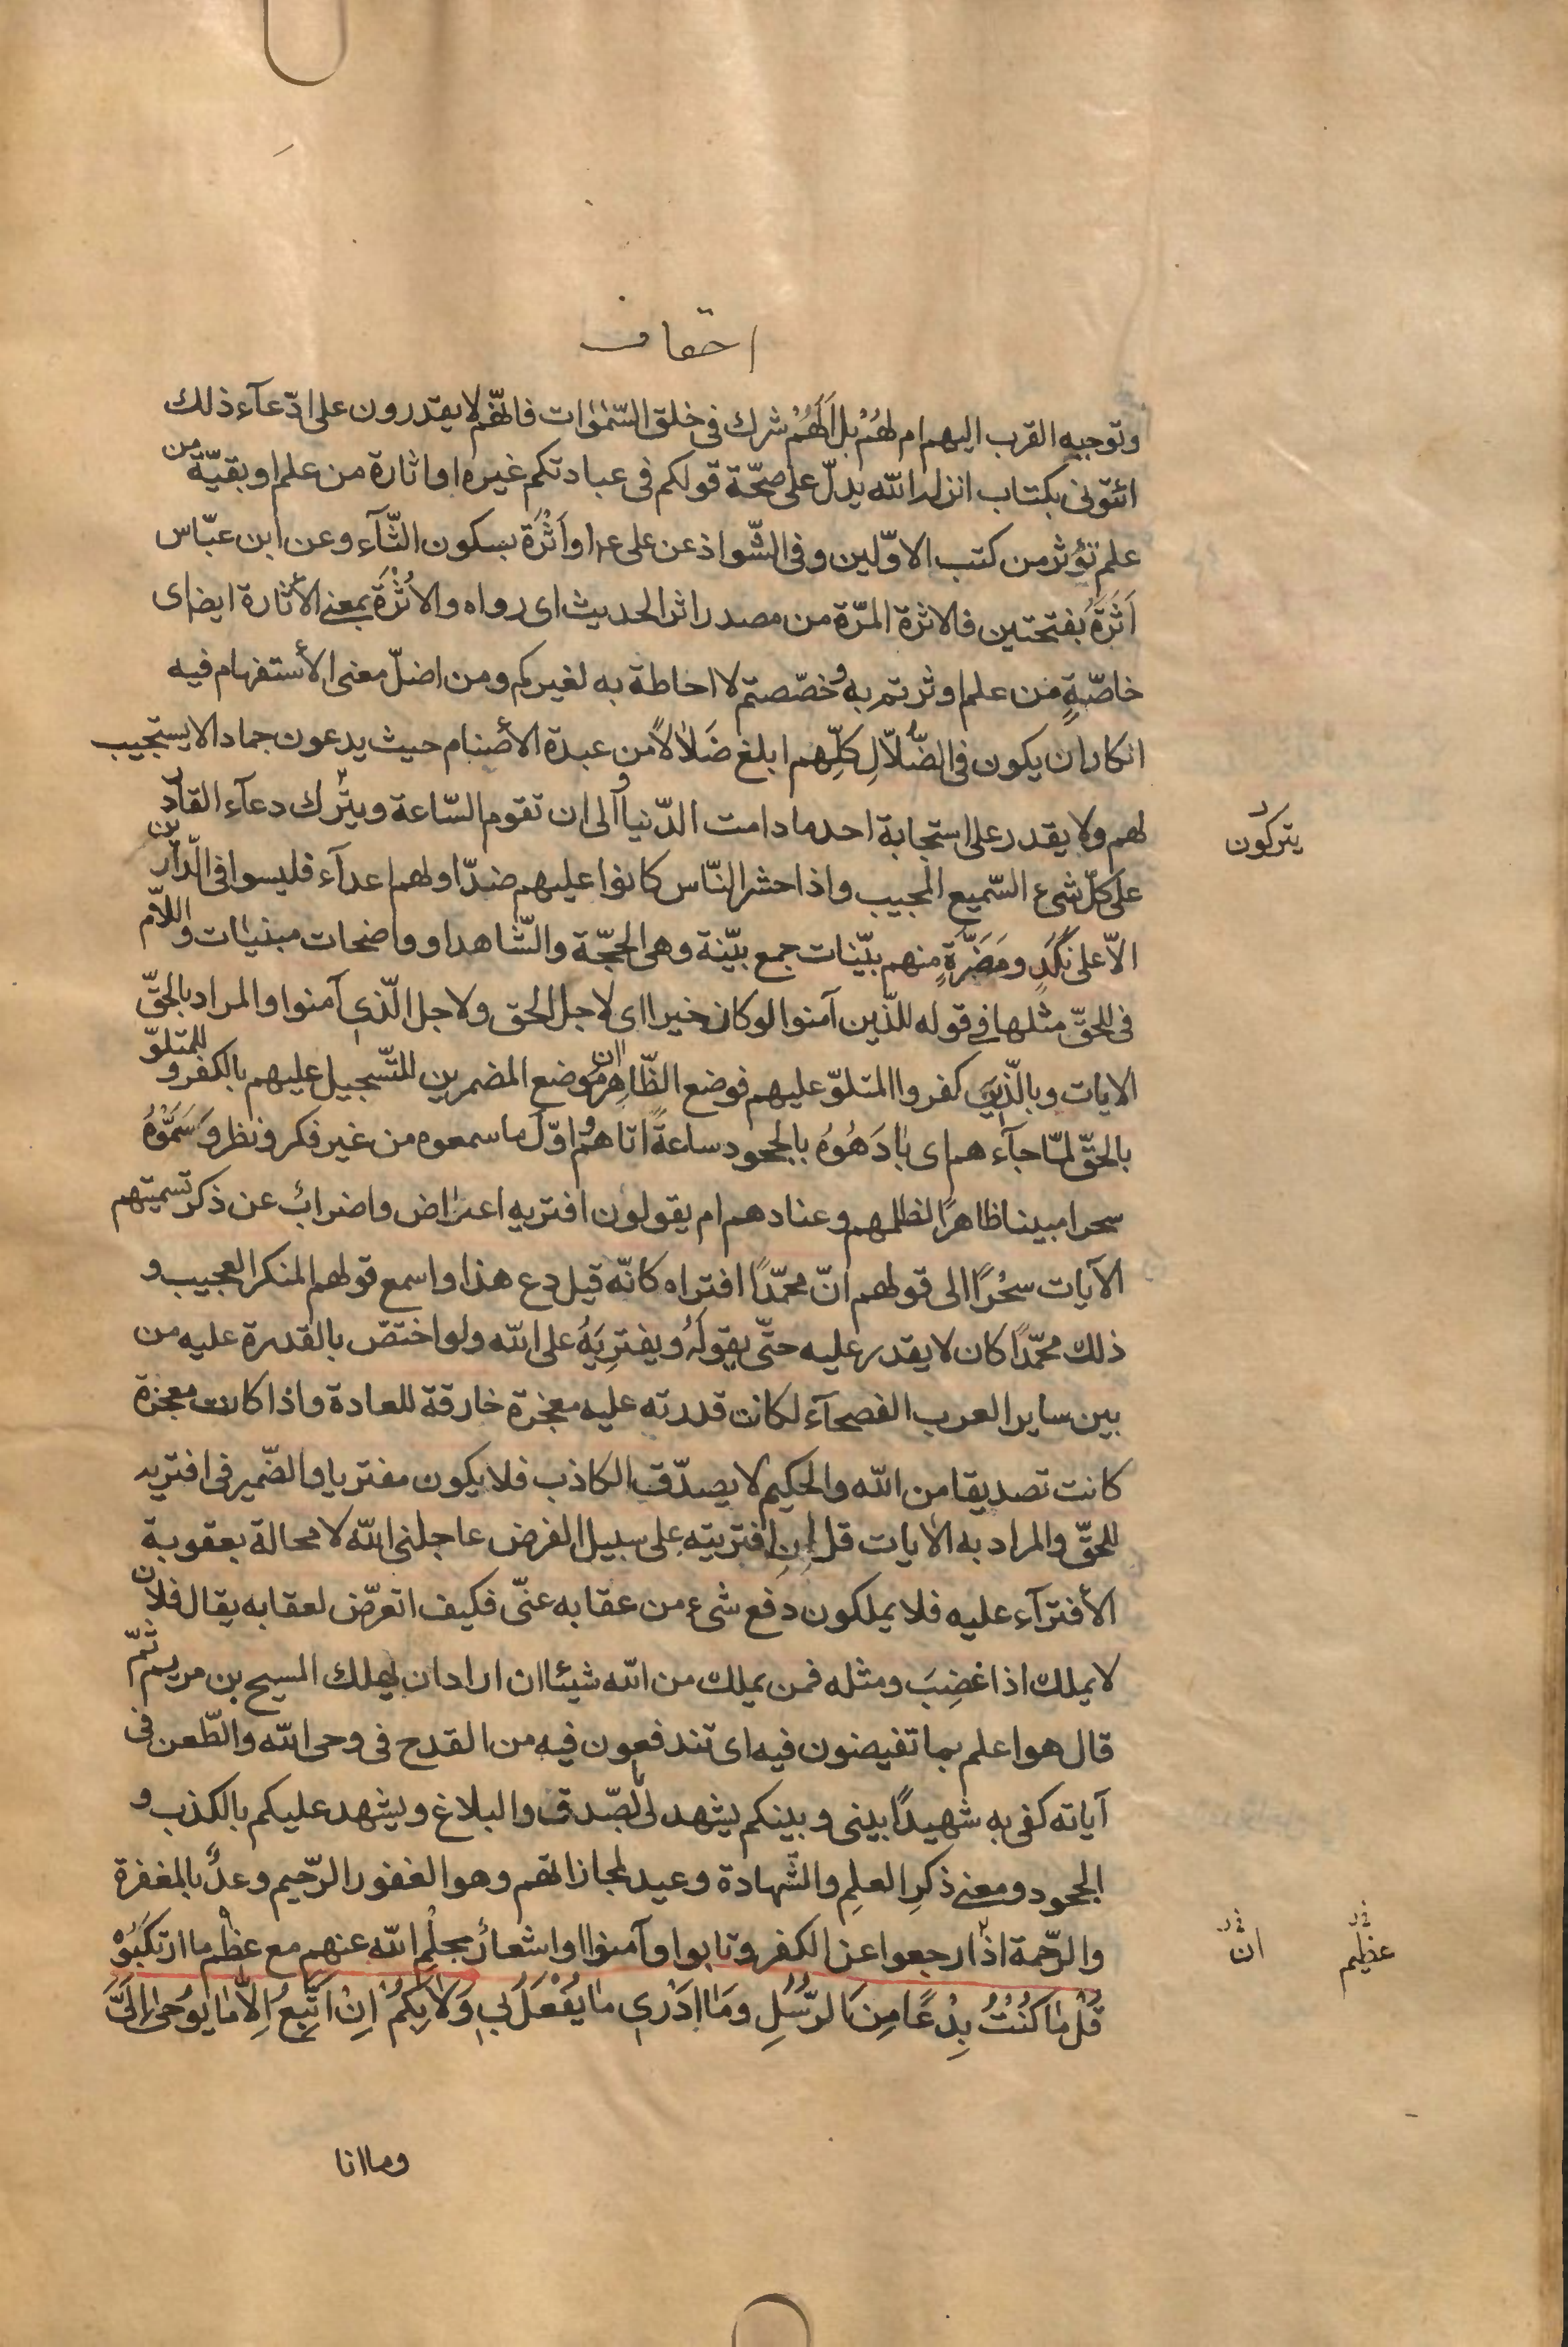 احقاف
وتوجيه القرب اليهم ام لهُمْ بل اَلَهُمْ شرك فى خلق السّمٰوٰات فانّهم لا يقدرون على ادّعآء ذلك
ائتونى بكتاب انزله الله يدلّ على صحّة قولكم فى عبادتكم غيره او اثارة من علم او بقيّة من
علم تؤثر من كتب الاوّلين وفى الشّواذ عن على ع او اَثْرَة بسكون الثّآء وعن ابن عبّاس
اَثَرَة بفتحتين فالاثرة المرّة من مصدر اثر الحديث اى رواه والاُثْرَة بمعنى الأثارة ايضا اى
خاصّةٍ من علم اوثرتم به وخصّصتم لا احاطة به لغيركم ومن اضلّ معنى الأستفهام فيه
انكار ان يكون فى الضُّلاّلِ كلِّهم ابلغ ضَلاٰلاً من عبدة الأصنام حيث يدعون جمادا لا يستجيب
لهم ولا يقدر على استجابة احد ما دامت الدّنيا والى ان تقوم السّاعة ويترك دعآء القادر
يتركون
على كلّ شىء السّميع المجيب واذا حشر النّاس كانوا عليهم ضدّا ولهم اعدآء فليسوا فى الدّارين
الاّ على نَكَدٍ ومَضَرَّةٍ منهم بيّنات جمع بيّنة وهى الحجّة والشّاهد او واضحات مبنيٰات واللاّم
فى للحقّ مثلها فى قوله للّذين آمنوا لو كان خيرا اى لاجل الحق ولاجل الّذى آمنوا والمراد بالحقّ
الايات وبالّذين كفروا المتلوّ عليهم فوضع الظّاهران موضع المضمرين للتّسجيل عليهم بالكفر وللمتلوّ
بالحقّ لمّا جآءهم اى بٰادَهُوُه بالجحود ساعةً اتاهم واوّل ما سمعوه من غير فكر ونظر وَسَمَّوْهُ
سحرا مبينا ظاهرًا لظلمهم وعنادهم ام يقولون افتريه اعتراض واضراب عن ذكر تسميتهم
الآيات سحْرًا الى قولهم انّ محمّدًا افتراه كانّه قيل دع هذا واسمع قولهم المنكر العجيب و
ذلك محمّدًا كان لا يقدر عليه حتّى يقولَهُ ويفترِيَهُ على الله ولو اختصّ بالقدرة عليه من
بين ساير العرب الفصحآء لكانت قدرته عليه معجزة خارقة للعادة واذا كانت معجزة
كانت تصديقا من الله والحكيم لا يصدّق الكاذب فلا يكون مفتريا والضّمير فى افتريه
للحقّ والمراد به الأيات قل اِنِ افتريته على سبيل الفرض عاجلنى الله لا محالة بعقوبة
الأفترآء عليه فلا يملكون دفع شىء من عقابه عنّى فكيف اتعرّض لعقابه يقال فلان
لا يملك اذا غضِبَ ومثله فمن يملك من الله شيئا ان اراد ان يهلك المسيح بن مريم ثمّ
قال هو اعلم بما تفيضون فيه اى تندفعون فيه من القدح فى وحى الله والطّعن فى
آياته كفى به شهيدًا بينى وبينكم يشهد لى بالصّدق والبلاغ ويشهد عليكم بالكذب و
الجحود ومعنى ذكرِ العلمِ والشّهادة وعيد لمجازاتهم وهو الغفور الرّحيم وعدٌ بالمغفرة
والرّحمة اذا رجعوا عن الكفر وتابوا وآمنوا او اشعار بحلْمِ الله عنهم مع عِظَم ما ارتكبُوْ
ان
عظيم
قُلْ مٰا كُنْتُ بِدْعًا مِنَ الرُّسُلِ ومَا اَدْرٖى مٰا يُفْعَلُ بٖى وَلاٰ بِكُمْ اِنْ اَتَّبِعُ اِلاّٰ مٰا يُوحىٰ اِلَىَّ
وما انا